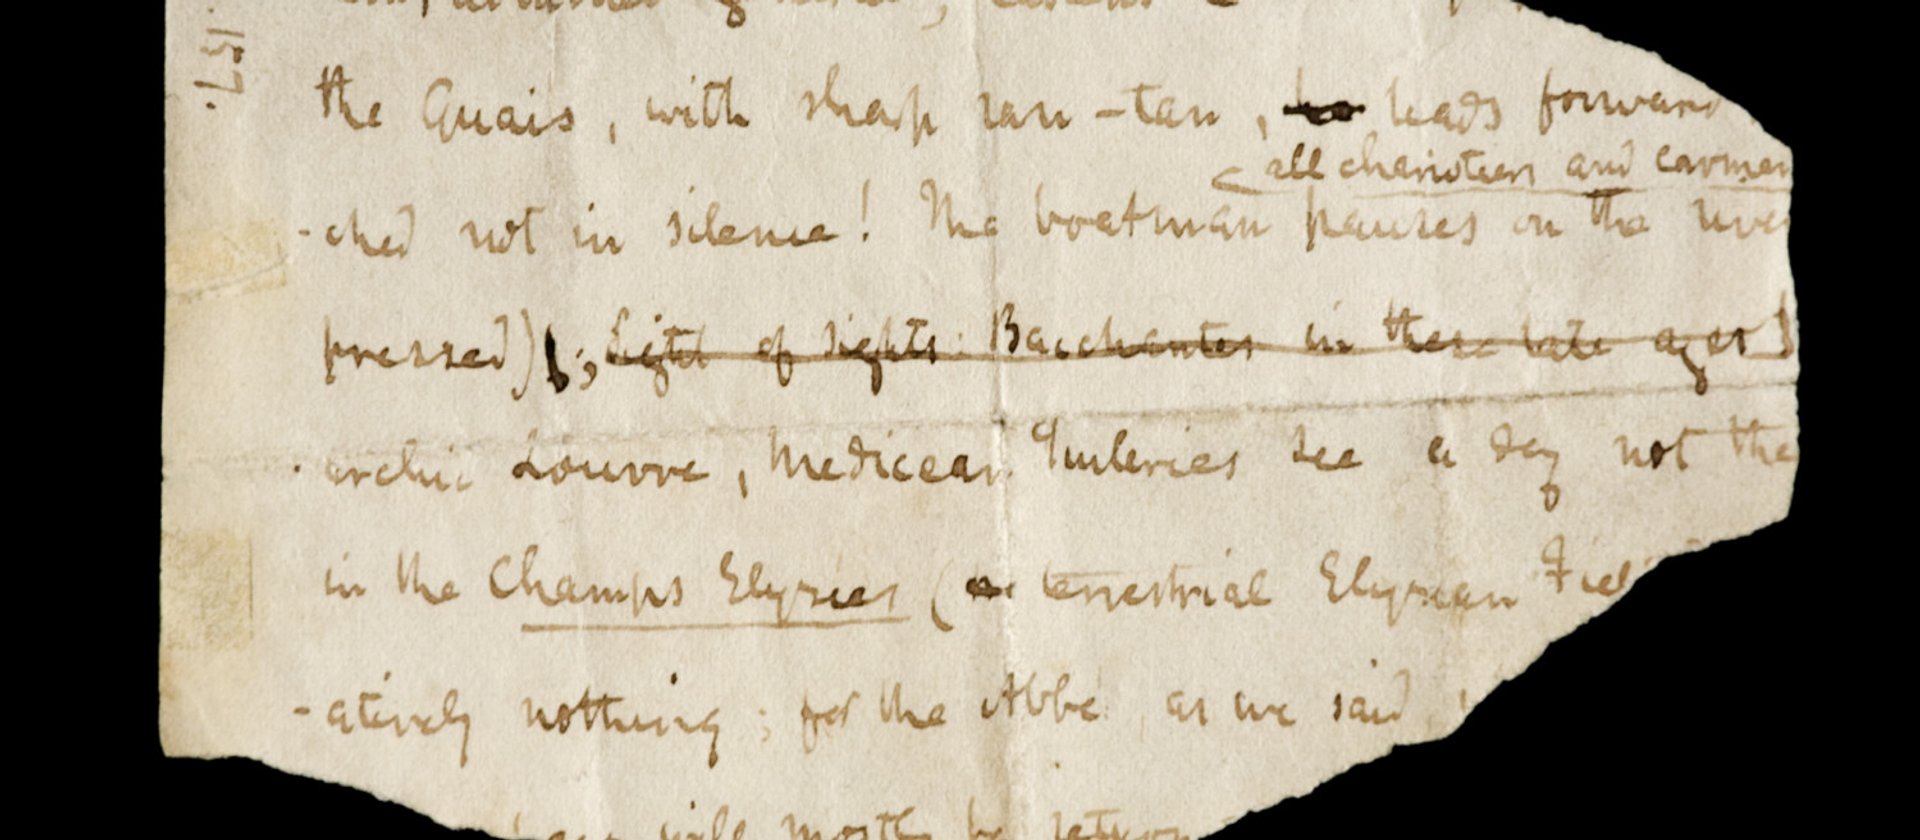 the Quais, with sharp ran-tan, leads forward
all charioteers and carmen
-ched not in silence! The boatman pauses on the river
pressed); Sight of sights: Bacchantes in these late ages!
archic Louvre, Medicean Tuileries see a day not the
in the Champs Elysées (terrestrial Elysian Fiel
-atively nothing; for the Abbé, as we said
will mostly be return
157.